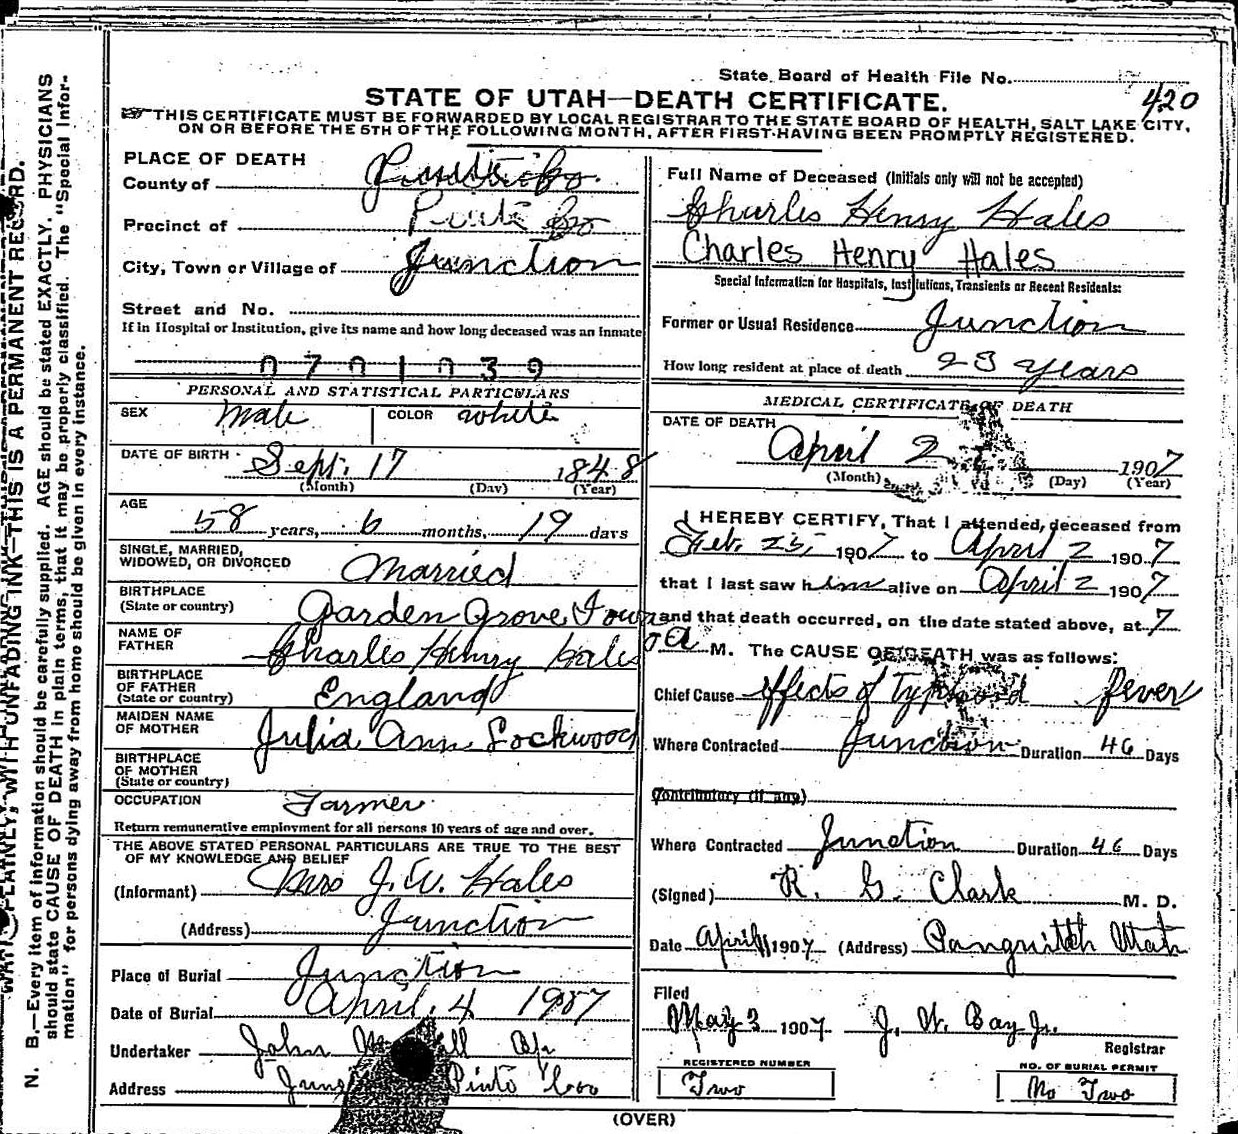 State Board of Health File No.
420
STATE OF UTAH—DEATH CERTIFICATE.
THIS CERTIFICATE MUST BE FORWARDED BY LOCAL REGISTRAR TO THE STATE BOARD OF HEALTH, SALT LAKE CITY,
ON OR BEFORE THE 5TH OF THE FOLLOWING MONTH, AFTER FIRST HAVING BEEN PROMPTLY REGISTERED.
PLACE OF DEATH
County of
Precinct of
City, Town or Village of Junction
Street and No.
If in Hospital or Institution, give its name and how long deceased was an inmate
0701039
PERSONAL AND STATISTICAL PARTICULARS
SEX Male COLOR white
DATE OF BIRTH Sept. 17 1848
(Month) (Day) (Year)
AGE
58 years, 6 months, 19 days
SINGLE, MARRIED,
WIDOWED, OR DIVORCED Married
BIRTHPLACE
(State or country) Garden Grove, Iowa
NAME OF
FATHER Charles Henry Hales
BIRTHPLACE
OF FATHER
(State or country) England
MAIDEN NAME
OF MOTHER Julia Ann Lockwood
BIRTHPLACE
OF MOTHER
(State or country)
OCCUPATION Farmer
Return remunerative employment for all persons 10 years of age and over.
THE ABOVE STATED PERSONAL PARTICULARS ARE TRUE TO THE BEST
OF MY KNOWLEDGE AND BELIEF
(Informant) Mrs J. W. Hales
(Address) Junction
Place of Burial Junction
Date of Burial April. 4 1907
Undertaker John
Address
Full Name of Deceased (Initials only will not be accepted)
Charles Henry Hales
Charles Henry Hales
Special Information for Hospitals, Institutions, Transients or Recent Residents:
Former or Usual Residence Junction
How long resident at place of death 23 years
MEDICAL CERTIFICATE OF DEATH
DATE OF DEATH
April 2 1907
(Month) (Day) (Year)
I HEREBY CERTIFY, That I attended, deceased from
Feb. 25, 1907 to April 2 1907
that I last saw him alive on April 2 1907
and that death occurred, on the date stated above, at 7
M. The CAUSE OF DEATH was as follows:
Chief Cause effects of Typhoid fever
Where Contracted Junction Duration 46 Days
Contributory (if any)
Where Contracted Junction Duration 46 Days
(Signed) R. G. Clark M. D.
Date April 1907 (Address) Panguitch Utah
Filed
May 3 1907 J. W. Bay Jr.
Registrar
REGISTERED NUMBER
Two
NO. OF BURIAL PERMIT
No Two
(OVER)
PLAINLY, WITH UNFADING INK—THIS IS A PERMANENT RECORD.
N. B.—Every item of information should be carefully supplied. AGE should be stated EXACTLY. PHYSICIANS
should state CAUSE OF DEATH in plain terms, that it may be properly classified. The "Special Infor-
mation" for persons dying away from home should be given in every instance.